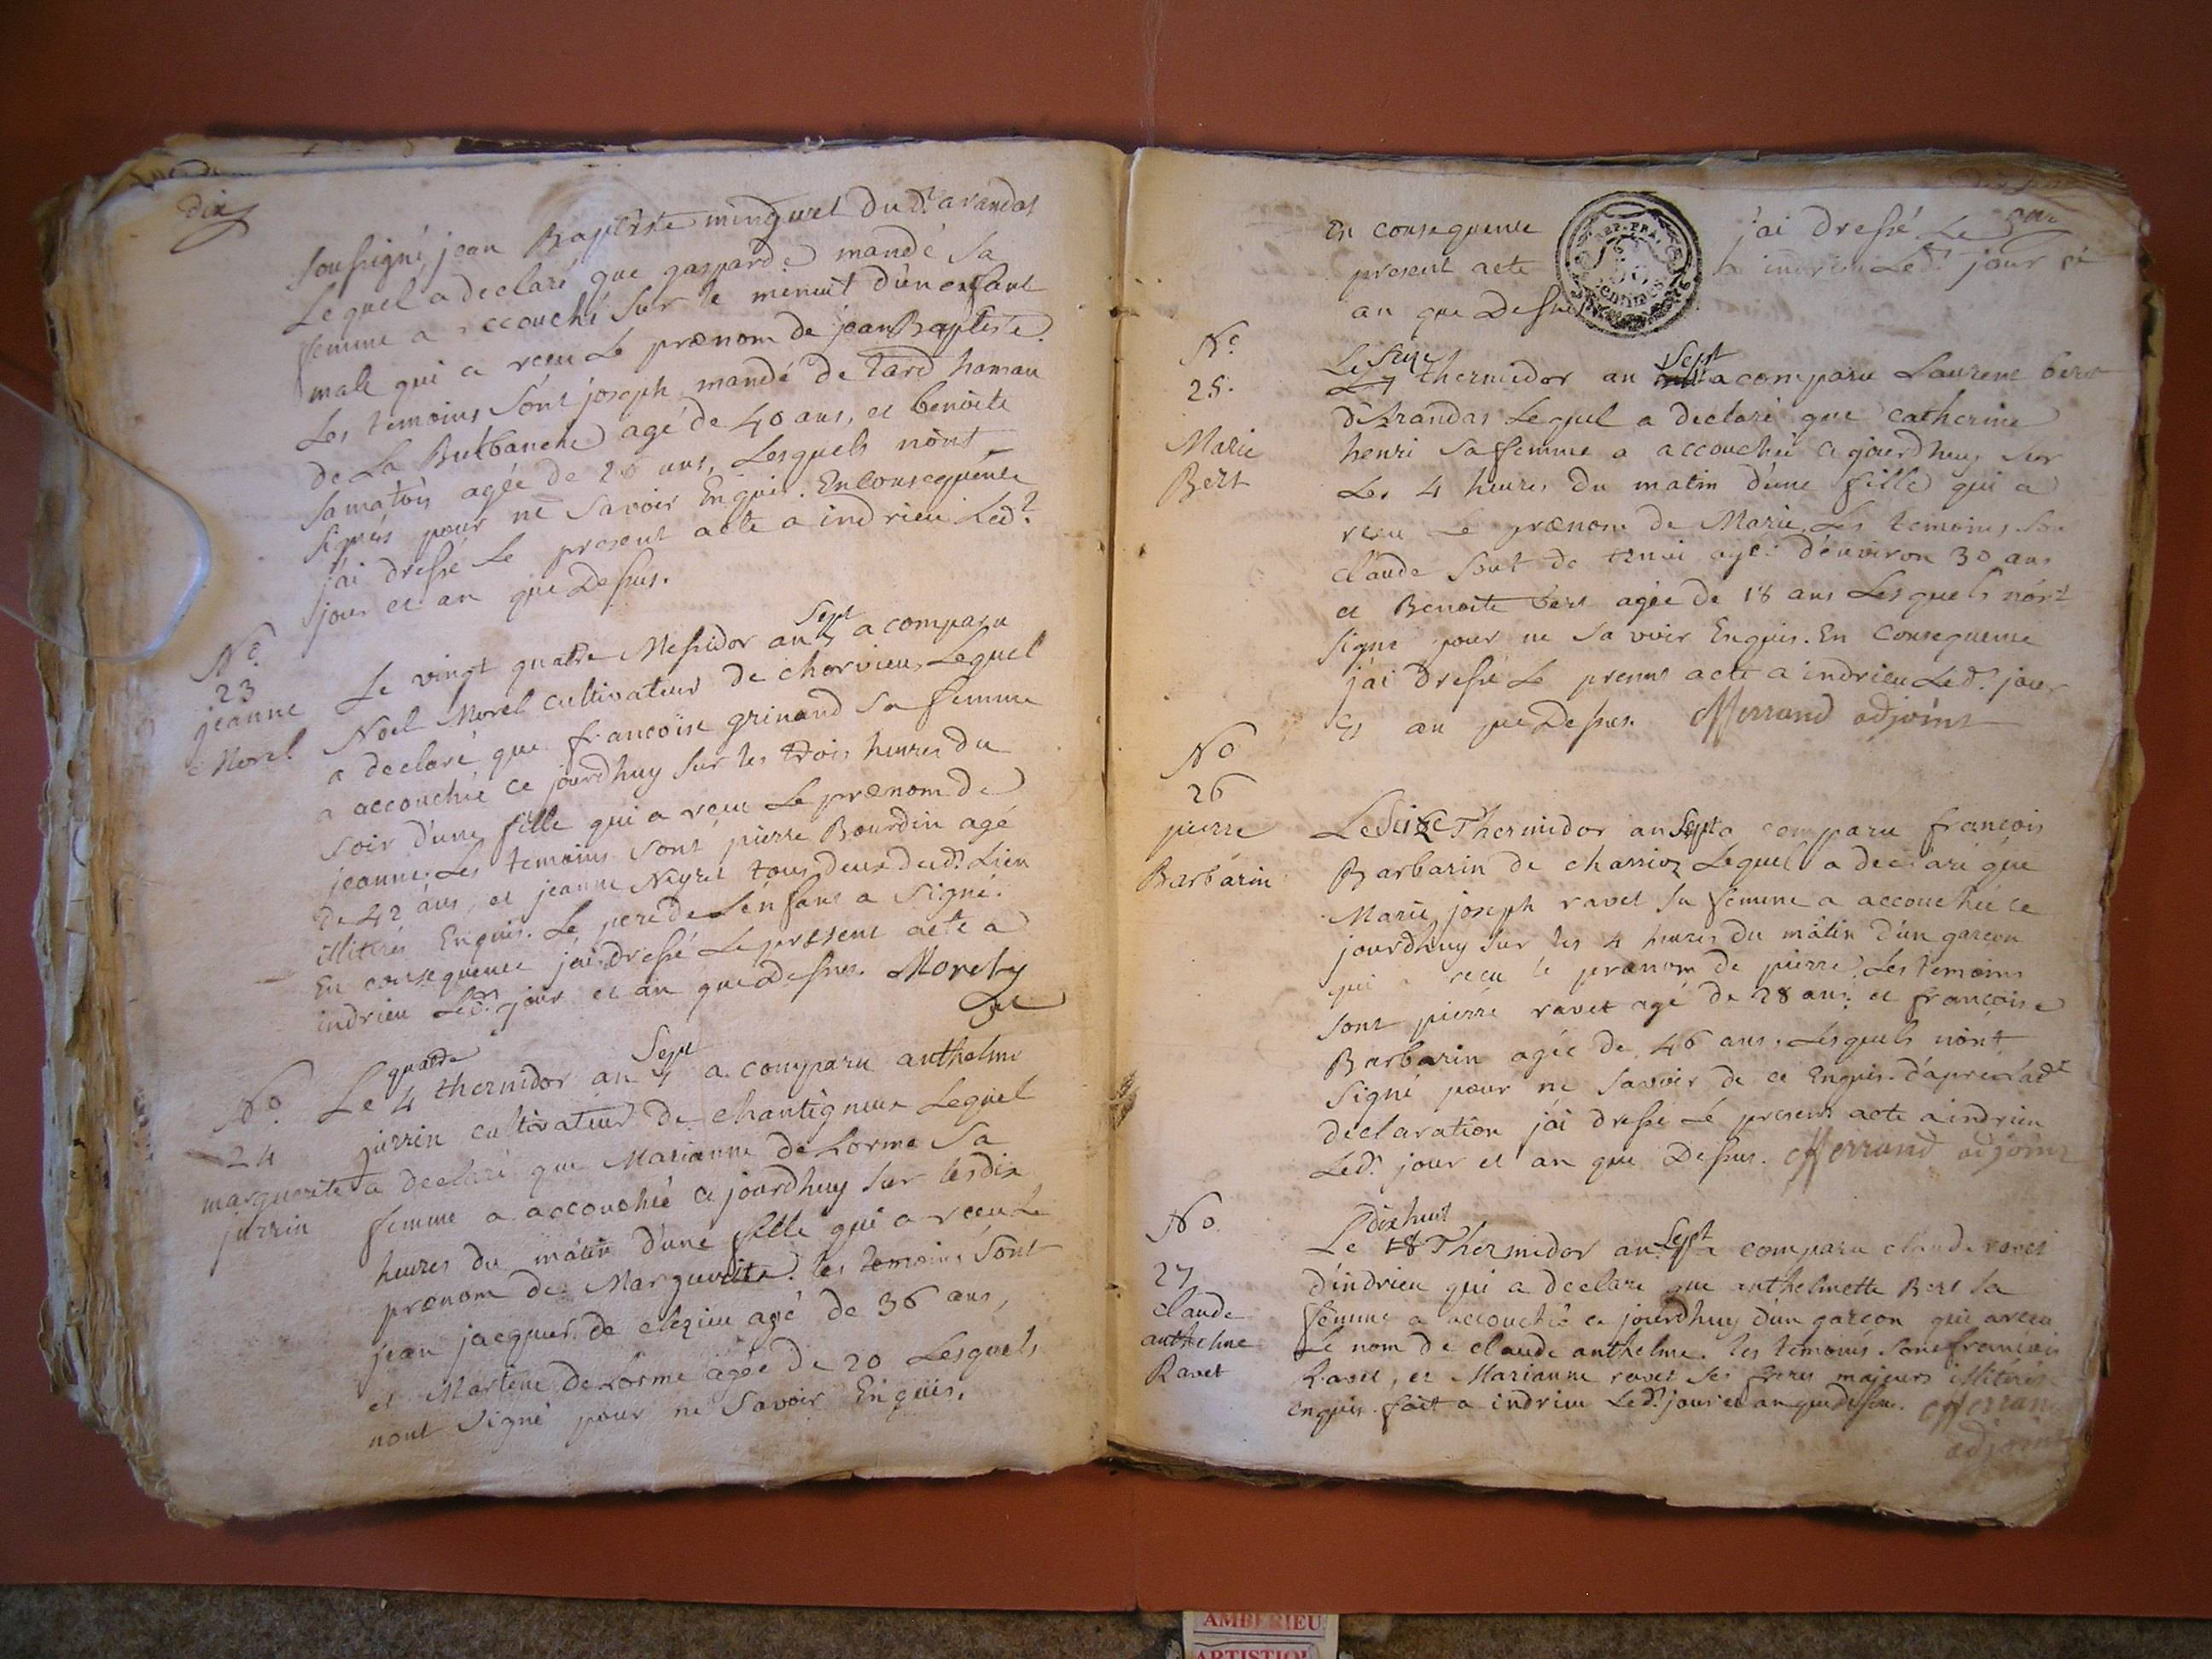 dix
soussigné, jean Baptiste minguet Du d.t arandas
Lequel a declaré que gasparde mandé Sa
femme a accouché Sur le minuit d'un enfant
male qui a reçu Le prœnom de jean Baptiste.
Les temoins Sont joseph mandé de tard hamau
de La Burbanche agé de 40 ans, et benoite
agée de 26 ans, Lesquels n'ont
signés pour ne Savoir Enquis. En consequence
j'ai dressé Le present acte a indrieu Led.t
jour et an que Dessus.
N.o
23
jeanne
Morel
Le vingt quatre Messidor an 7 Sept a comparu
Noel Morel cultivateur de chorvieu Lequel
a declaré que francoise grinand Sa femme
a accouchié ce jourdhuy Sur les trois heures du
Soir d'une fille qui a reçu Le prœnom de
jeanne. Les temoins Sont pierre Bourdin agé
de 42 ans, et jeanne Neyret tous deux dud.t Lieu
illiterés Enquis. Le pere de L'enfant a Signé.
En consequence j'ai dressé Le present acte a
indrieu Led.t jour et an que Dessus. Morel
N.o
24
marguerite
jurrin
Le 4 quatre thermidor an 7 Sept a comparu anthelme
jurrin cultivateur de chantigneux Lequel
a declaré que Marianne de Lorme Sa
femme a accouchié ce jourdhuy Sur les dix
heures du matin d'une fille qui a reçu Le
prœnom de Marguerite. les temoins Sont
jean jacques de cleyzieu agé de 36 ans,
et Martine de Lorme agée de 20 Lesquels
n'ont Signé pour ne Savoir Enquis.
onze
En consequence j'ai dressé Le
present acte a indrieu Led.t jour et
an que Dessus
REP. FRA.
50
centimes
N.o
25.
Marie
Bert
Le Seize thermidor an Sept a comparu Laurent bert
d'Arandas Lequel a declaré que catherine
henri Sa femme a accouchée ce jourdhuy Sur
Les 4 heures du matin d'une fille qui a
reçu Le prœnom de Marie. Les temoins Son
claude de agé d'environ 30 ans
et Benoite bert agée de 18 ans Lesquels n'ont
signé pour ne Savoir Enquis. En Consequence
j'ai dressé Le present acte a indrieu Led.t jour
et an que Dessus. Merrand adjoint
N.o
26
pierre
Barbarin
Le Seize Thermidor an Sept a comparu francois
Barbarin de charvioz Lequel a declaré que
Marie joseph ravet Sa femme a accouchée ce
jourdhuy Sur les 4 heures du matin d'un garcon
qui a reçu le prœnom de pierre. Les temoins
Sont pierre ravet agé de 28 ans et françoise
Barbarin agée de 46 ans. Lesquels n'ont
Signé pour ne Savoir de ce Enquis. d'après lad.te
declaration j'ai dressé Le present acte a indrieu
Led.t jour et an que Dessus. Merrand adjoint
N.o
27
claude
anthelme
Ravet
Le 18 dix huit Thermidor an Sept a comparu claude ravet
d'indrieu qui a declaré que anthelmette Bert Sa
femme a accouchié ce jourdhuy d'un garcon qui a reçu
Le nom de claude anthelme. les temoins Sont francois
Ravet, et Marianne ravet Ses freres majeurs illiterés
Enquis. fait a indrieu Led.t jour et an que dessus. Merrand
adjoint
AMBERIEU